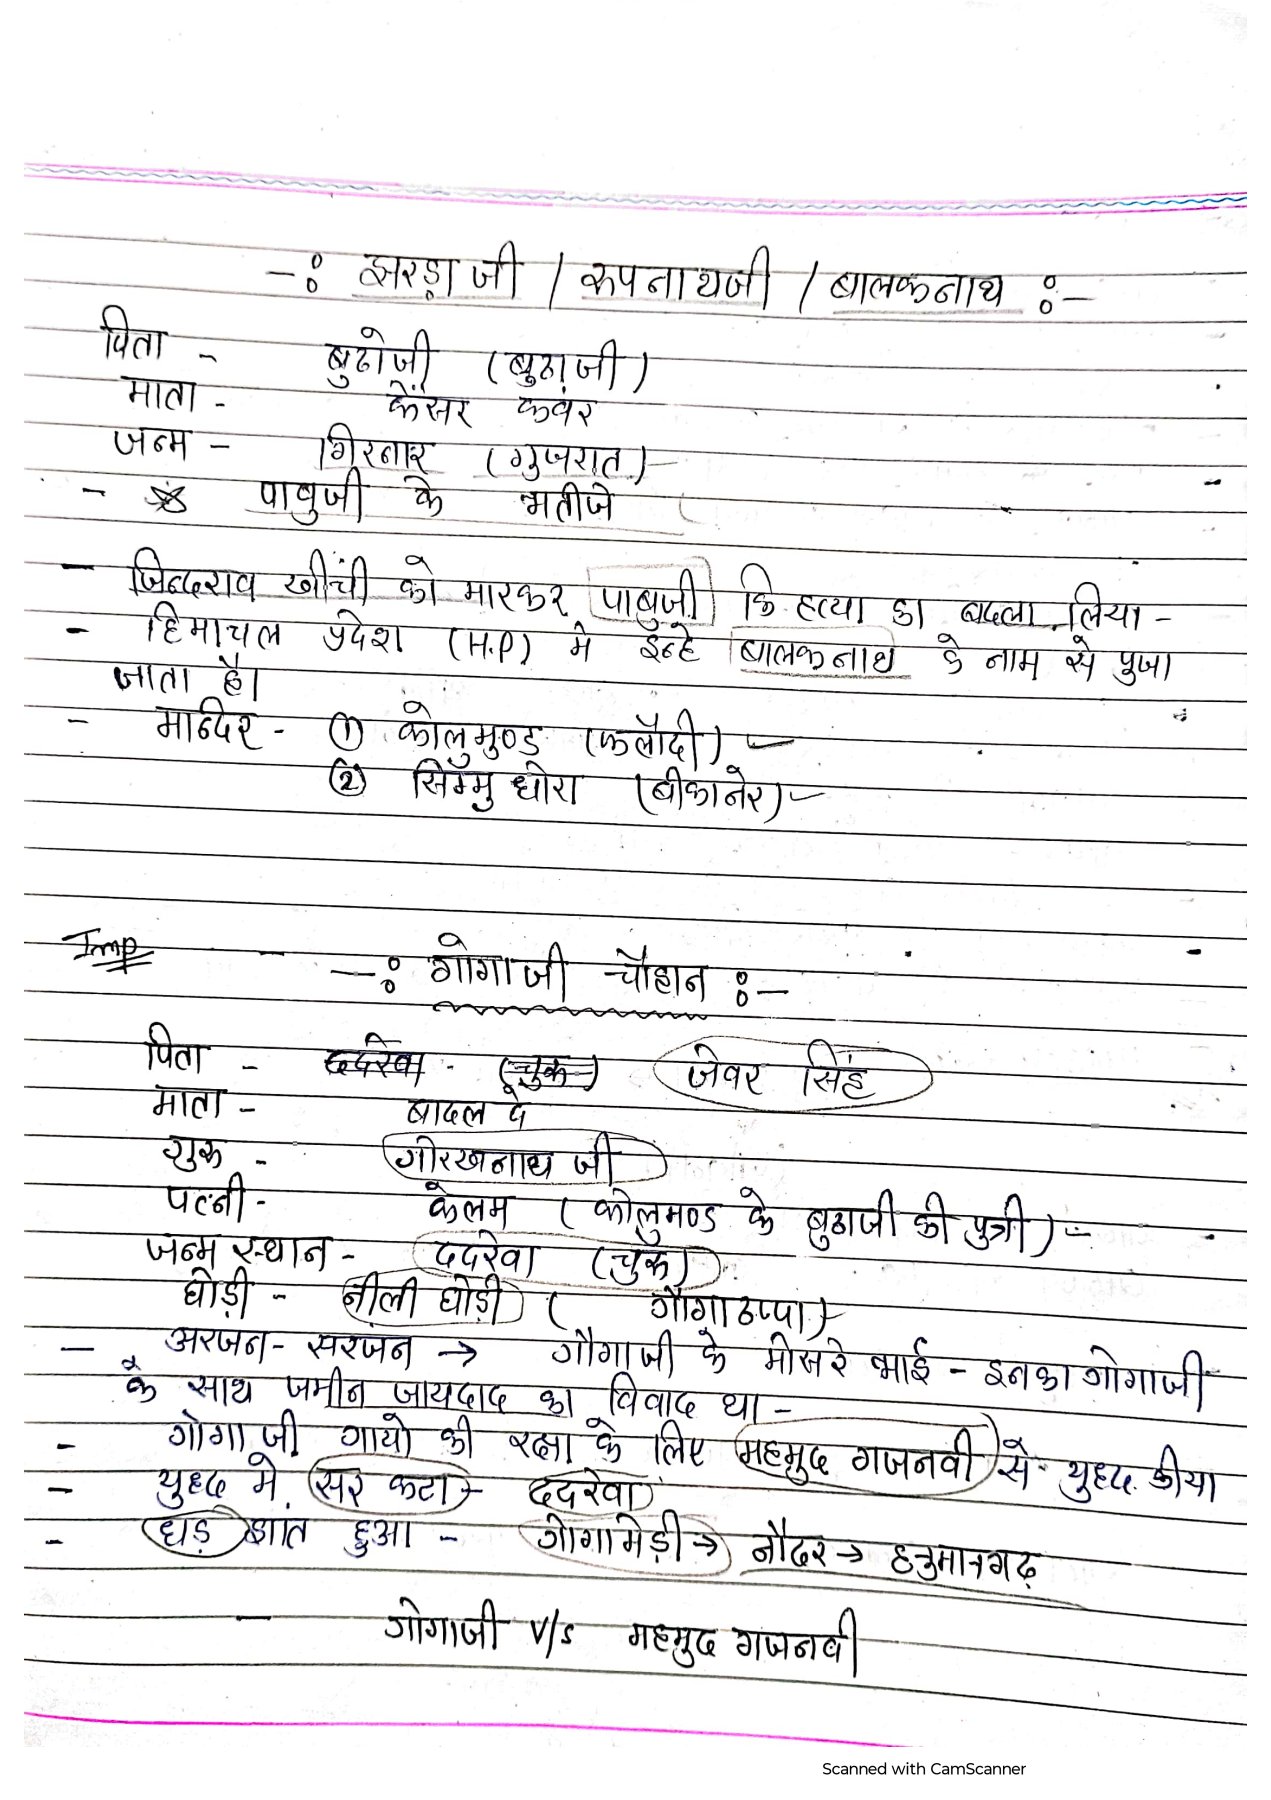 -: झरड़ा जी / रूपनाथजी / बालकनाथ :-
पिता - बुढोजी (बुढाजी)
माता - केंसर कवंर
जन्म - गिरनार (गुजरात)
- पाबुजी के भतीजे
- जिन्दराव खींची को मारकर पाबुजी कि हत्या का बदला लिया -
- हिमाचल प्रदेश (H.P) मे इन्हे बालकनाथ के नाम से पुजा
जाता है।
- मन्दिर - ① कोलुमुण्ड (फलौदी)
② सिम्भु धोरा (बीकानेर) -
Imp
-: गोगाजी चौहान :-
पिता - ददरेवा (चुरू) जेवर सिंह
माता - बादल दे
गुरू - गोरखनाथ जी
पत्नी - केलम (कोलुमण्ड के बुढाजी की पुत्री) -
जन्म स्थान - ददरेवा (चुरू)
घोड़ी - नीली घोड़ी ( गौगा ठप्पा)
- अरजन - सरजन → गौगाजी के मौसरे भाई - इनका गोगाजी
के साथ जमीन जायदाद का विवाद था -
- गोगाजी गायो की रक्षा के लिए महमुद गजनवी से युद्द कीया
- युद्द मे सर कटा - ददरेवा
- धड़ शांत हुआ - गोगामेड़ी → नौहर → हनुमानगढ़
- गोगाजी V/s महमुद गजनवी
Scanned with CamScanner